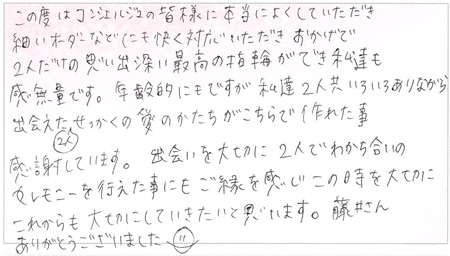 この度はコンシェルジュの皆様に本当によくしていただき
細いオーダーなどにも快く対応いただき おかげで
2人だけの思い出深い最高の指輪ができ私達も
感無量です。年齢的にもですが私達2人共いろいろありながら
出会えた2人せっかくの愛のかたちがこちらで作れた事
感謝しています。出会いを大切に2人でわかち合いの
セレモニーを行えた事にもご縁を感じこの時を大切に
これからも大切にしていきたいと思います。藤井さん
ありがとうございました